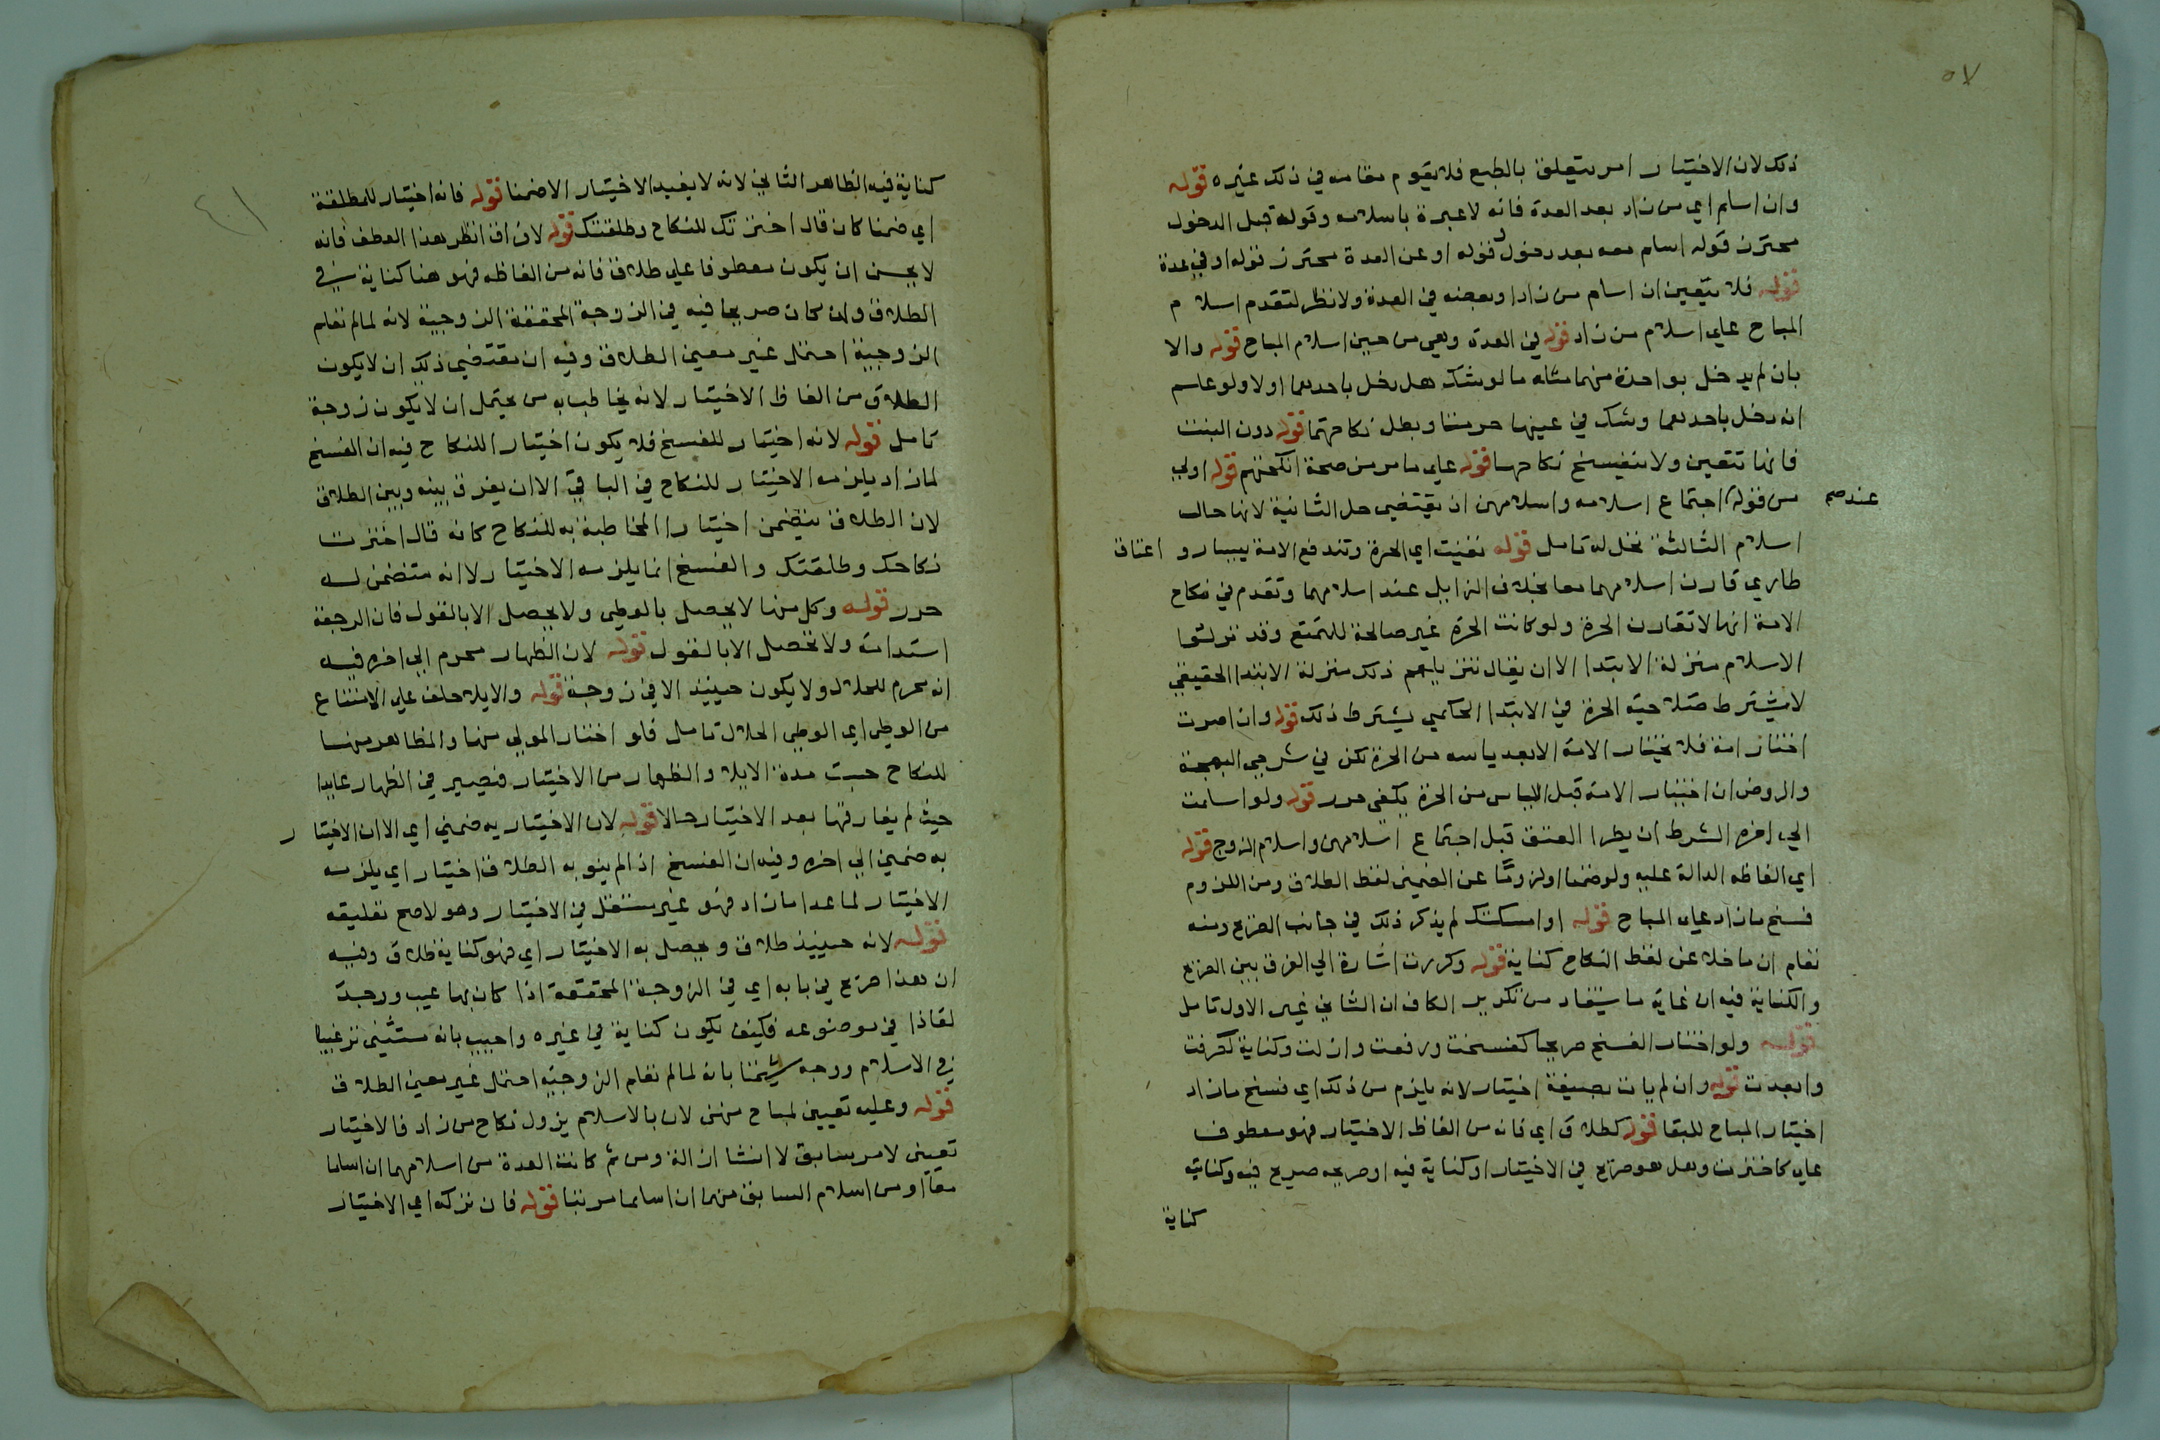 ٥٧
ذلك لان الاختيار امر يتعلق بالطبع فلا يقوم مقامه في ذلك غيره قوله
وان اسلم اي من زاد بعد العدة فانه لا عبرة باسلامه وقوله قبل الدخول
محترز قوله اسلم معه بعد دخول قوله او عن العدة محترز قوله او في عدة
قوله فلا يتعين ان اسلم من زاد او بعضه في العدة ولا نظر لتقدم اسلام
المباح علي اسلام من زاد قوله في العدة وهي من حين اسلام المباح قوله والا
بان لم يدخل بواحدة منهما مثله ما لو شك هل دخل باحدهما اولا ولو علم
انه دخل باحدهما وشك في عينها حرمتا وبطل نكاحهما قوله دون البنت
فانها تتعين ولا ينفسخ نكاحها قوله علي ما مر من صحة انكحتهم قوله اولي
من قوله اجتماع اسلامه واسلامهن ان يقتضي حل الثانية لانها حال
عند صح
اسلام الثالثة تحل له تامل قوله نفيت اي الحرة وتندفع الامة بيسار و اعتاق
طاري قارن اسلامهما معا بخلاف الزايل عند اسلامهما وتقدم في نكاح
الامة انها لا تقارن الحرة ولو كانت الحرة غير صالحة للتمتع وقد نزلتوا
الاسلام منزلة الابتدا الا ان يقال تنزيلهم ذلك منزلة الابتدا الحقيقي
لا يشترط صلاحية الحرة في الابتدا الحاكمي يشترط ذلك قوله وان اصرت
اختار امة فلا يختار الامة الا بعد ياسه من الحرة لكن في شرحي البهجة
والروض ان اختيار الامة قبل الياس من الحرة يكفي حرر قوله ولو اسلمت
الي اخره الشرط ان يطرا العتق قبل اجتماع اسلامهن واسلام الزوج قوله
اي الفاظه الدالة عليه ولو ضمنا او لزوما عن الضمني لفظ الطلاق ومن اللزوم
فسخ ما زاد علي المباح قوله او امسكتك لم يذكر ذلك في جانب الصريح ومنه
تعلم ان ما خلا عن لفظ النكاح كناية قوله وكررت اشارة الي الفرق بين الصريح
والكناية فيه ان غاية ما يستفاد من تكرير الكاف ان الثاني غير الاول تامل
قوله ولو اختار الفسخ صريحا كفسخت ورفعت وازلت وكناية كصرفت
وابعدت قوله وان لم يات بصيغة اختيار لانه يلزم من ذلك اي فسخ ما زاد
اختيار المباح للبقا قوله كطلاق اي فانه من الفاظ الاختيار فهو معطوف
علي كاخترت وهل هو صريح في الاختيار او كناية فيه او صريحه صريح فيه وكنايته
كناية
كناية فيه الظاهر الثاني لانه لا يفيد الاختيار الا ضمنا قوله فانه اختيار للمطلقة
اي ضمنا كان قال اخترتك للنكاح وطلقتك قوله لا فراق انظر هذا العطف فانه
لا يحسن ان يكون معطوفا علي طلاق فانه من الفاظه فهو هنا كناية في
الطلاق وان كان صريحا فيه في الزوجة المحققة الزوجية لانه لما لم تعلم
الزوجية احتمل غير معين الطلاق وفيه ان مقتضي ذلك ان لا يكون
الطلاق من الفاظ الاختيار لانه يخاطب به من يحتمل ان لا يكون زوجة
تامل قوله لانه اختيار للفسخ فلا يكون اختيارا للنكاح فيه ان الفسخ
لما زاد يلزمه الاختيار للنكاح في الباقي الا ان يفرق بينه وبين الطلاق
لان الطلاق يتضمن اختيار المخاطبة به للنكاح كانه قال اخترت
نكاحك وطلقتك والفسخ انما يلزمه الاختيار لا انه متضمن له
حرر قوله وكل منها لا يحصل بالوطي ولا يحصل الا بالقول فان الرجعة
استدامة ولا تحصل الا بالقول قوله لان الظهار محرم الي اخره فيه
انه محرم للحلال ولا يكون حينيذ الا في زوجة قوله والايلا حلف علي الامتناع
من الوطي اي الوطي الحلال تامل فلو اختار المولي منها والمظاهر منها
للنكاح حسبت مدة الايلا والظهار من الاختيار فيصير في الظهار عايدا
حيث لم يفارقها بعد الاختيار حالا قوله لان الاختيار به ضمني اي الا ان الاختيار
به ضمني الي اخره وفيه ان الفسخ اذا لم ينو به الطلاق اختيار اي يلزمه
الاختيار لما عدا ما زاد فهو غير مستقل في الاختيار وهو لا صح تعليقه
قوله لانه حينيذ طلاق ويحصل به الاختيار اي فهو كناية طلاق وفيه
ان هذا صريح في بابه اي في الزوجة المحققة اذا كان بها عيب ووجد
نفاذا في موضوعه فكيف يكون كناية في غيره واجيب بانه مستثني ترغيبا
في الاسلام ووجه شيخنا بانه لما لم تعلم الزوجية احتمل غير معين الطلاق
قوله وعليه تعيين لمباح منهن لان بالاسلام يزول نكاح من زاد فالاختيار
تعيين لامر سابق لا انشا ازالة ومن ثم كانت العدة من اسلامهما ان اسلما
معا او من اسلام السابق منهما ان اسلما مرتبا قوله فان تركه اي الاختيار